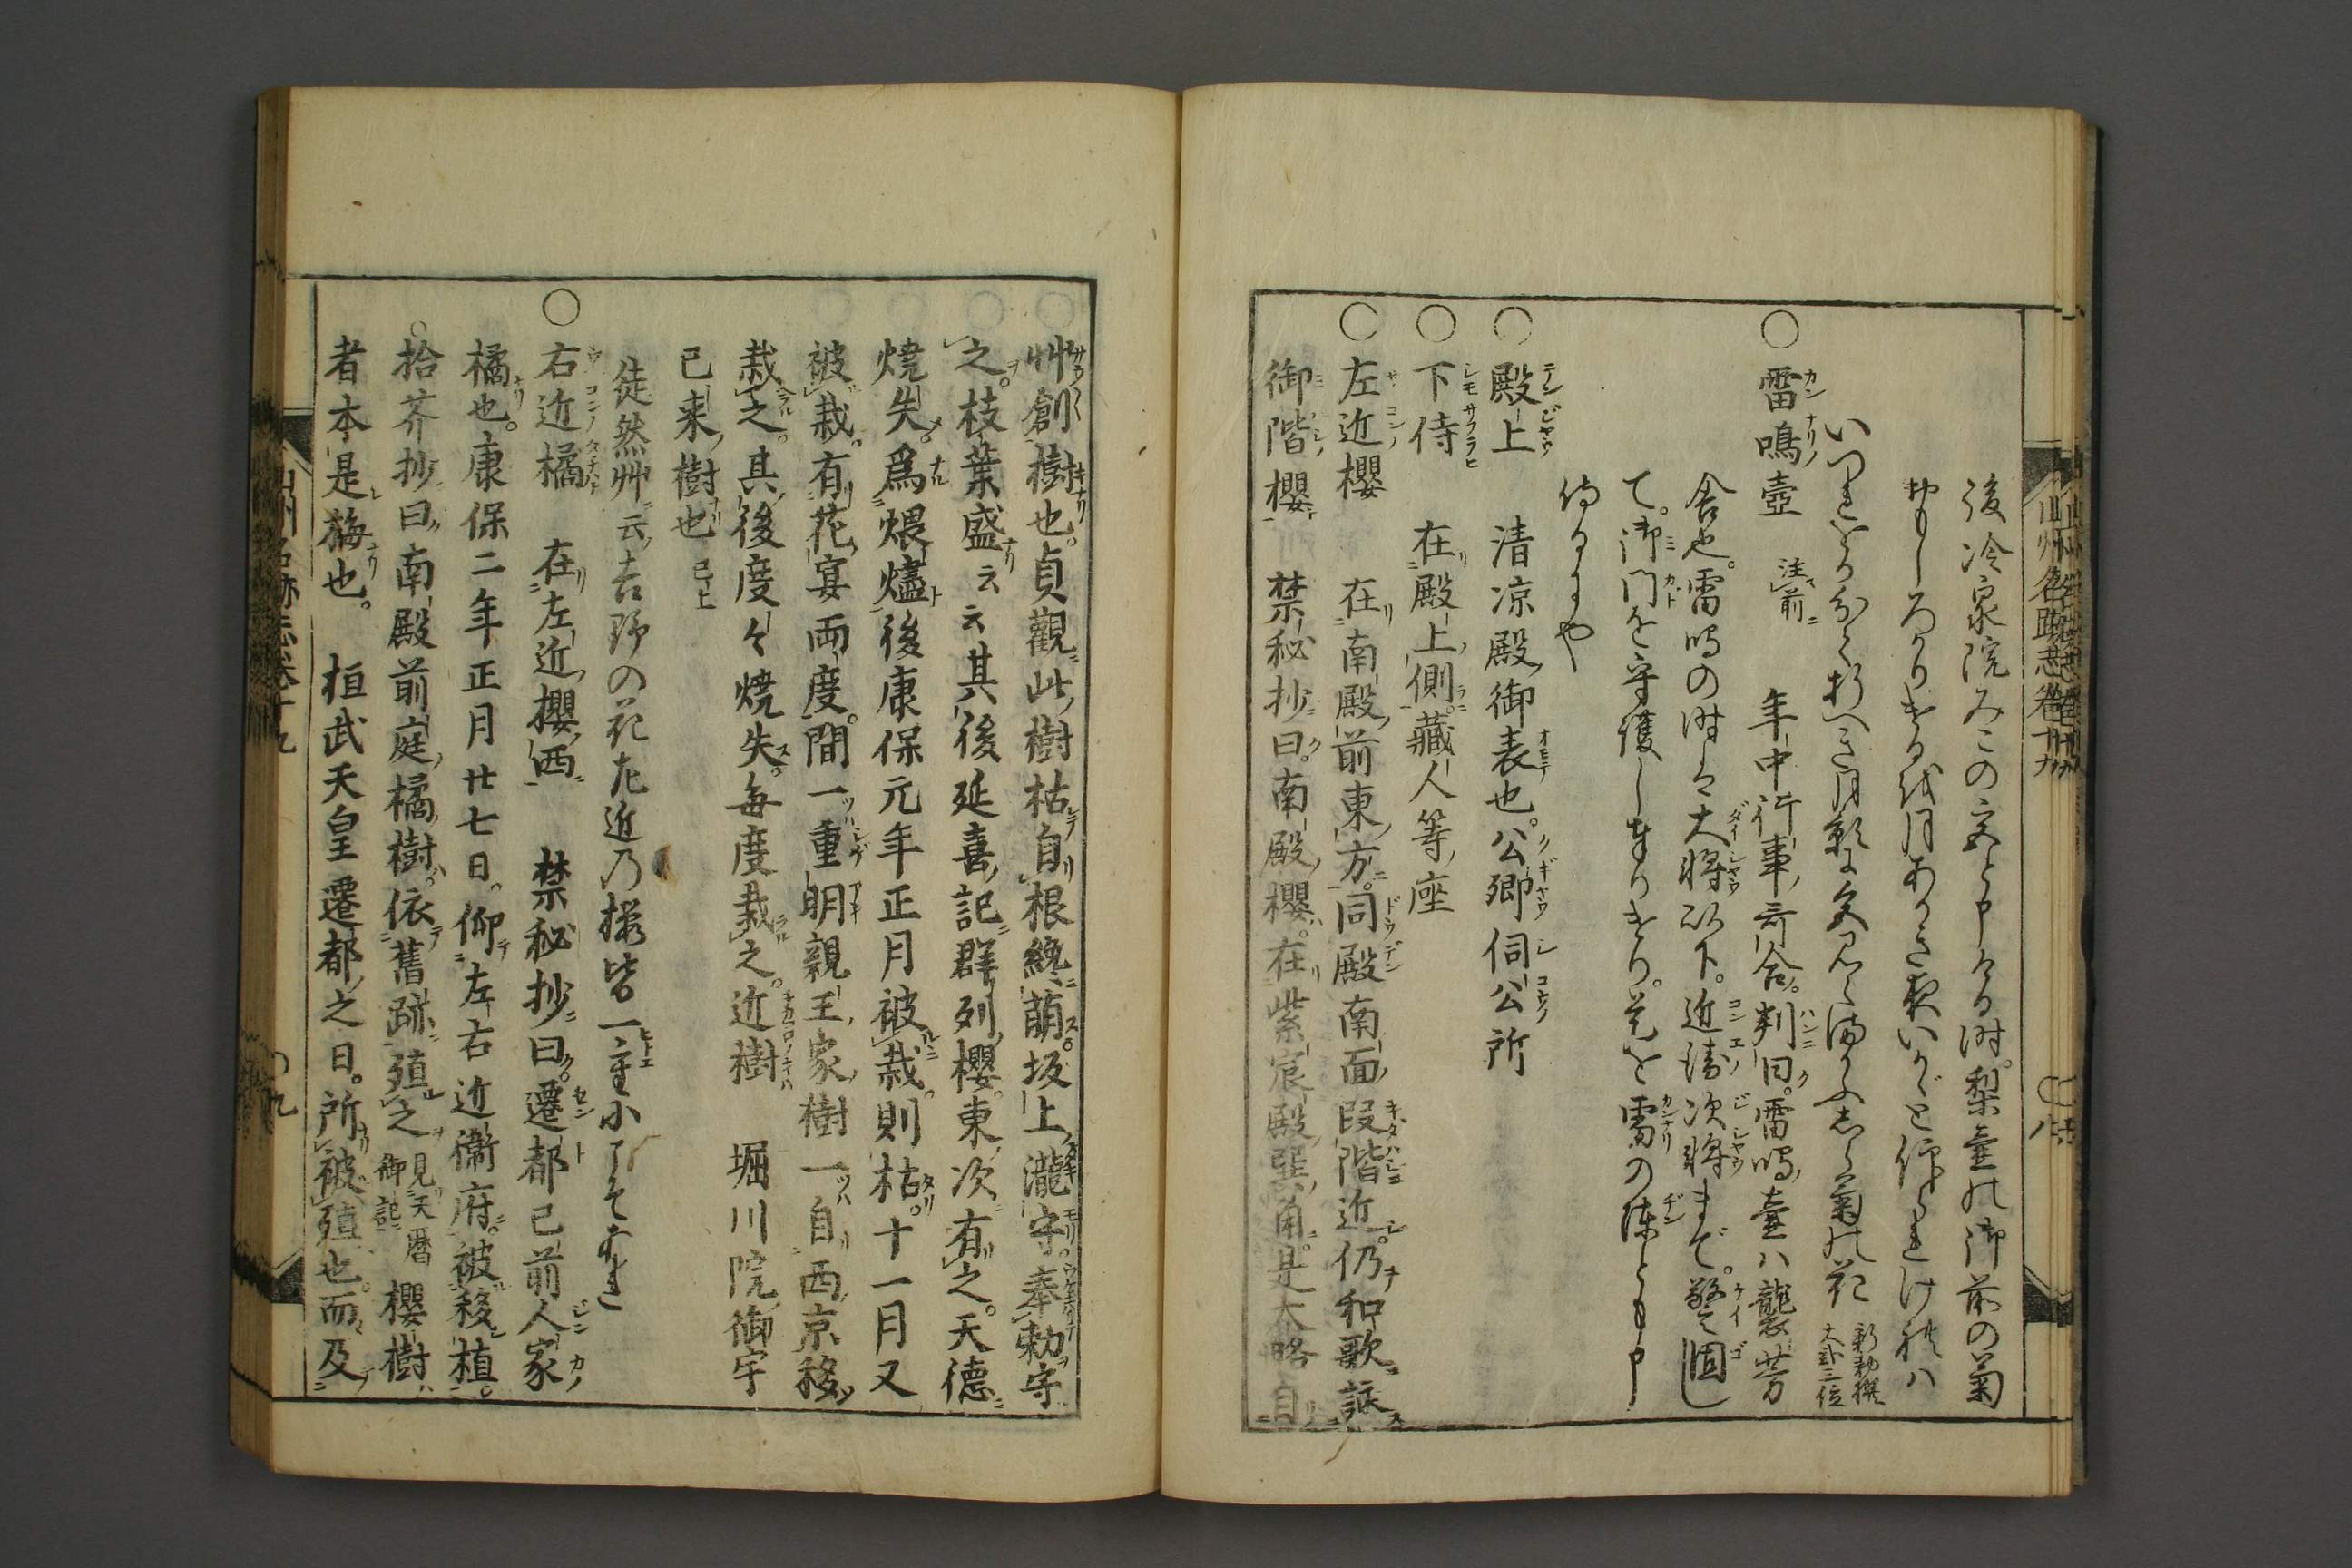 後冷泉院みこの宮と申ける時。梨壺の御前の菊
おもしろかりけるを月あかき夜いかゞと仰られけれハ
いつれをか分て折へき月影に色見えまかふしら菊の花 新勅撰 大貳三位
○雷鳴壺 注前 年中行事歌合。判曰。雷鳴壺ハ襲芳
舎也。雷鳴の時は大將以下。近衛次將まで。警固し
て。御門を守護し奉りけり。是を雷の陣とも申
侍るにや
○殿上 清凉殿御表也。公卿伺公所
○下侍 在殿上側。藏人等座
○左近櫻 在南殿前東方。同殿南面段階近。仍和歌詠
御階櫻 禁秘抄曰。南殿櫻。在紫宸殿巽角。是大略自
艸創樹也。貞觀此樹枯自根纔萠。坂上瀧守。奉勅守
之。枝葉盛云云其後延喜記群列櫻東次有之。天德
燒失。爲煨燼後康保元年正月被栽。則枯。十一月又
被栽。有花宴両度。間一重明親王家樹一自西京移
栽之。其後度々燒失。每度栽之。近樹 堀川院御宇
已来樹也 已上
徒然艸云吉野の花左近乃櫻皆一重にてこそあれ
○右近橘 在左近櫻西 禁秘抄曰。遷都已前人家
橘也。康保二年正月廿七日。仰左右近衞府。被移植。
○拾芥抄曰南殿前庭橘樹。依舊跡殖之 見天曆御記 櫻樹
者本是梅也。 桓武天皇遷都之日。所被殖也。而及
山州名跡志卷十九
山州名跡志卷十九
○八
○九